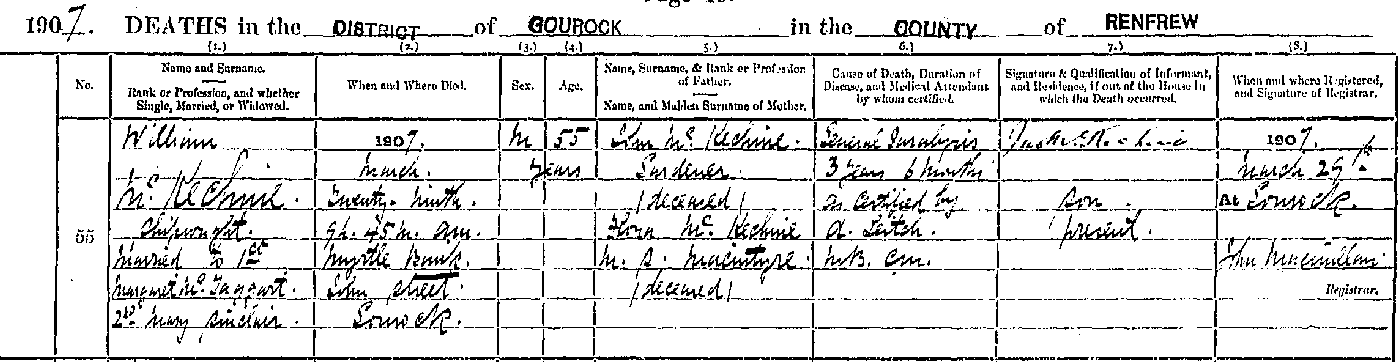 1907. DEATHS in the DISTRICT of GOUROCK in the COUNTY of RENFREW
(1.) (2.) (3.) (4.) 5.) 6.) 7.) (8.)
No.
Name and Surname.
Rank or Profession, and whether
Single, Married, or Widowed.
When and Where Died.
Sex.
Age.
Name, Surname, & Rank or Profession
of Father.
Name, and Maiden Surname of Mother.
Cause of Death, Duration of
Disease, and Medical Attendant
by whom certified.
Signature & Qualification of Informant,
and Residence, if out of the House in
which the Death occurred.
When and where Registered,
and Signature of Registrar.
55
William
McKechnie.
Shipwright.
Married to 1st
Margaret McTaggart.
2nd Mary Sinclair.
1907.
March.
Twenty-ninth.
9h. 45m. am.
Myrtle Bank.
John Street
Gourock.
M
55
years
John McKechnie.
Gardener
(deceased)
Flora McKechnie
M. S. Macintyre.
(deceased)
General Paralysis
3 years 6 months
as certified by
A. Leitch.
M.B. C.M.
McKechnie
Son.
present.
1907.
March 29th
At Gourock.
John Macmillan
Registrar.